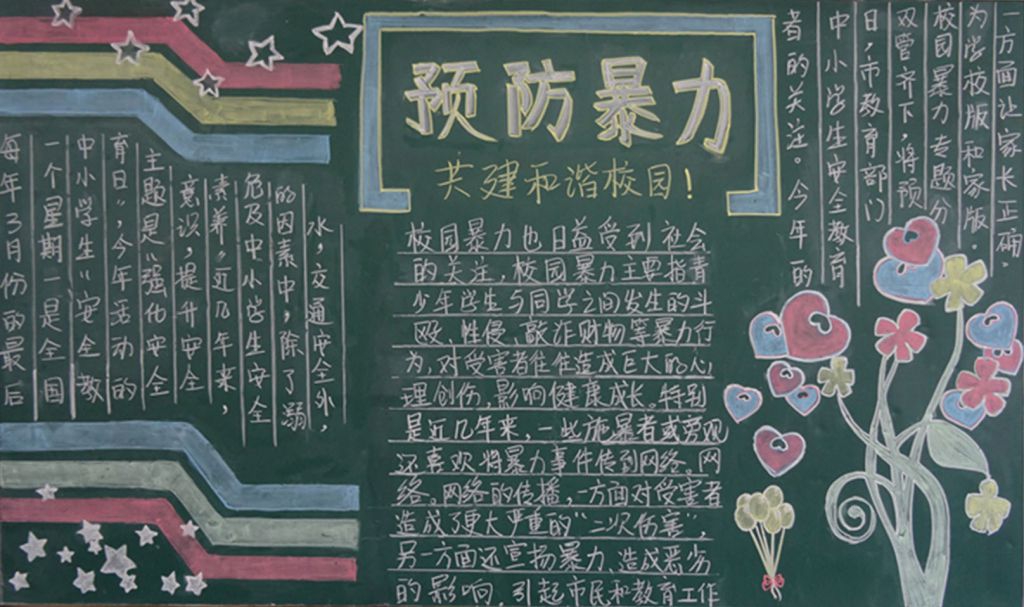 预防暴力
共建和谐校园!
每年3月份的最后
一个星期一是全国
中小学生"安全教
育日",今年活动的
主题是"强化安全
意识,提升安全
素养"近几年来,
危及中小学生安全
的因素中,除了溺
水,交通安全外,
校园暴力也日益受到社会
的关注,校园暴力主要指青
少年学生与同学之间发生的斗
殴、性侵、敲诈财物等暴力行
为,对受害者往往造成巨大的心
理创伤,影响健康成长。特别
是近几年来,一些施暴者或旁观
还喜欢将暴力事件传到网络。网
络。网络的传播,一方面对受害者
造成了更大严重的"二次伤害",
另一方面还宣扬暴力、造成恶劣
的影响,引起市民和教育工作
者的关注。今年的
中小学生安全教育
日,市教育部门
双管齐下,将预
校园暴力专题分
为学校版和家版.
一方面让家长正确.